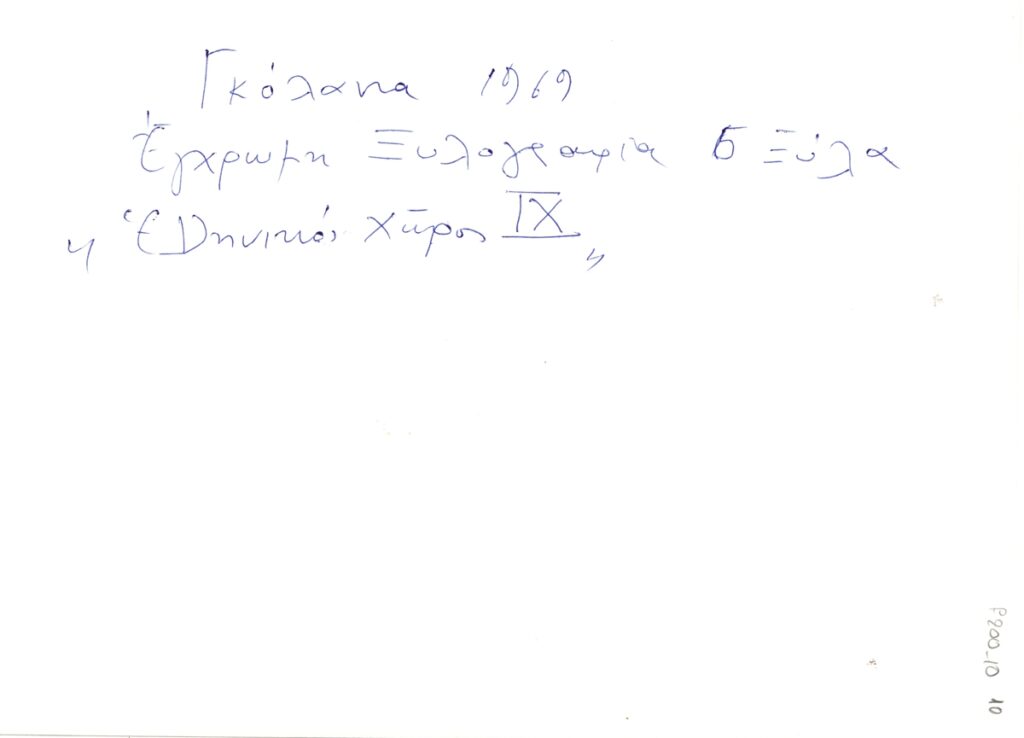 Γκόλαντα 1969
Ἔγχρωμη Ξυλογραφία 5 Ξύλα
"Ἑλληνικός χῶρος IX"
P200_10 10